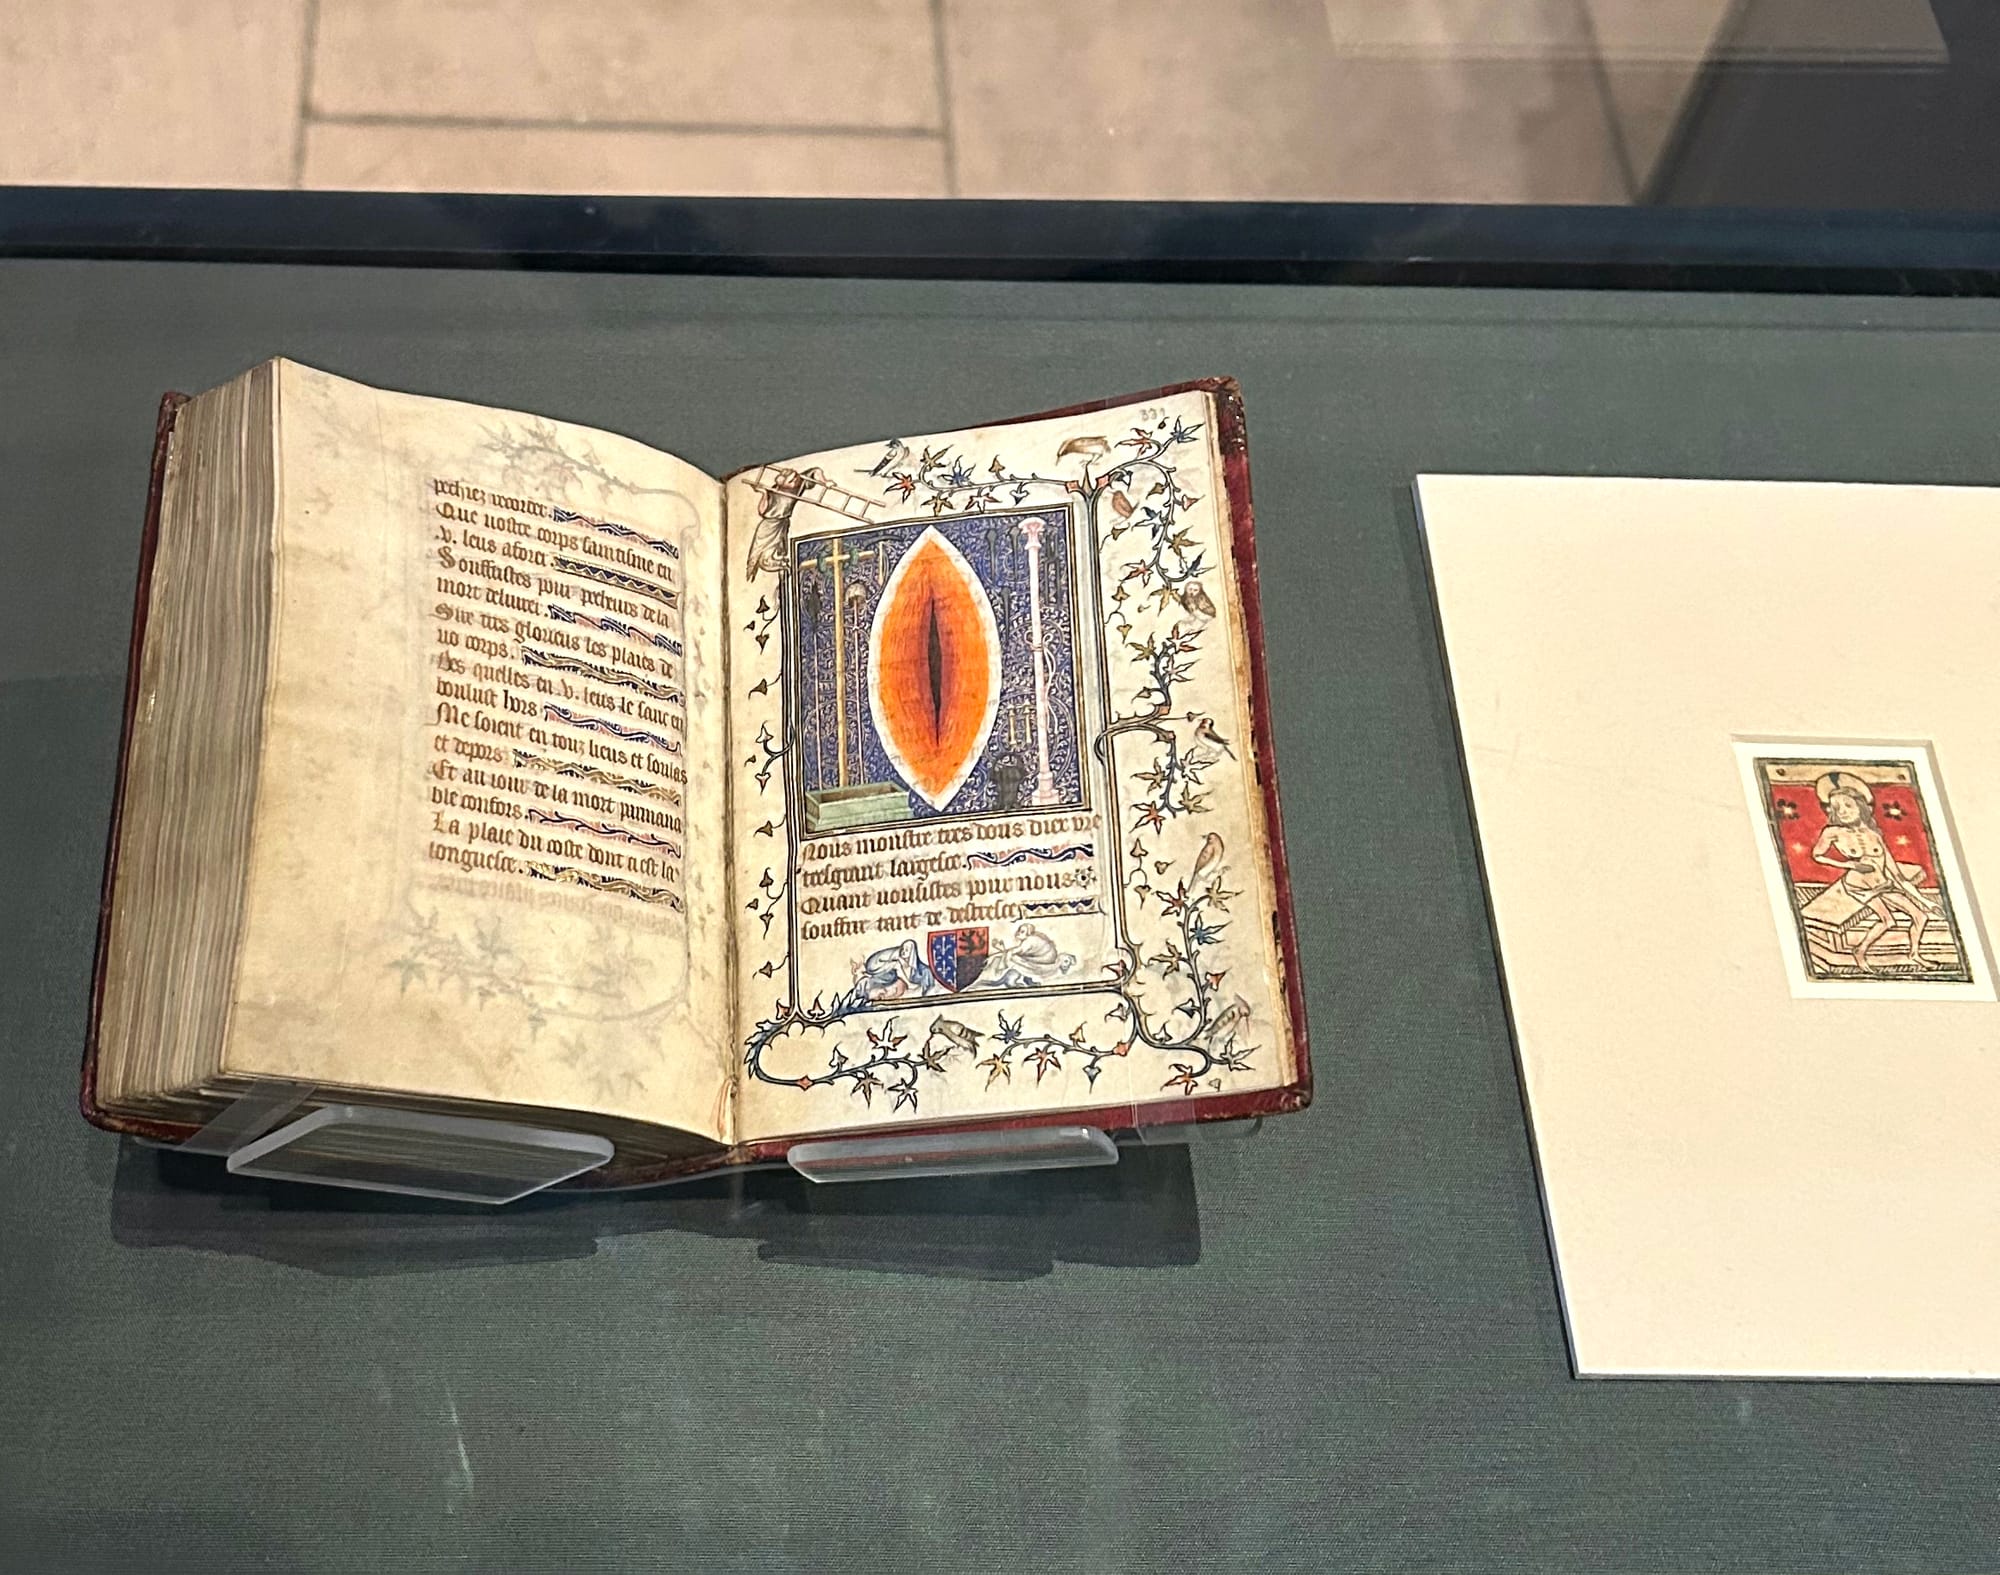 pechiez recorder.
Que nostre corps saintisme en
.v. leus aforer.
Souffristes pour pecheurs de la
mort delivrer.
Sire tres glorieus les plaies de
vo corps.
Des quelles en .v. leus le sanc en
boulust hors
Me soient en touz lieus et soulas
et depors
Et au iour de la mort pmmana
ble confors.
La plaie du coste dont ci est la
longuesce.
331
Nous monstre tres dous diex vre
tresgrant largesce.
Quant vousistes pour nous
souffrir tant de destresce